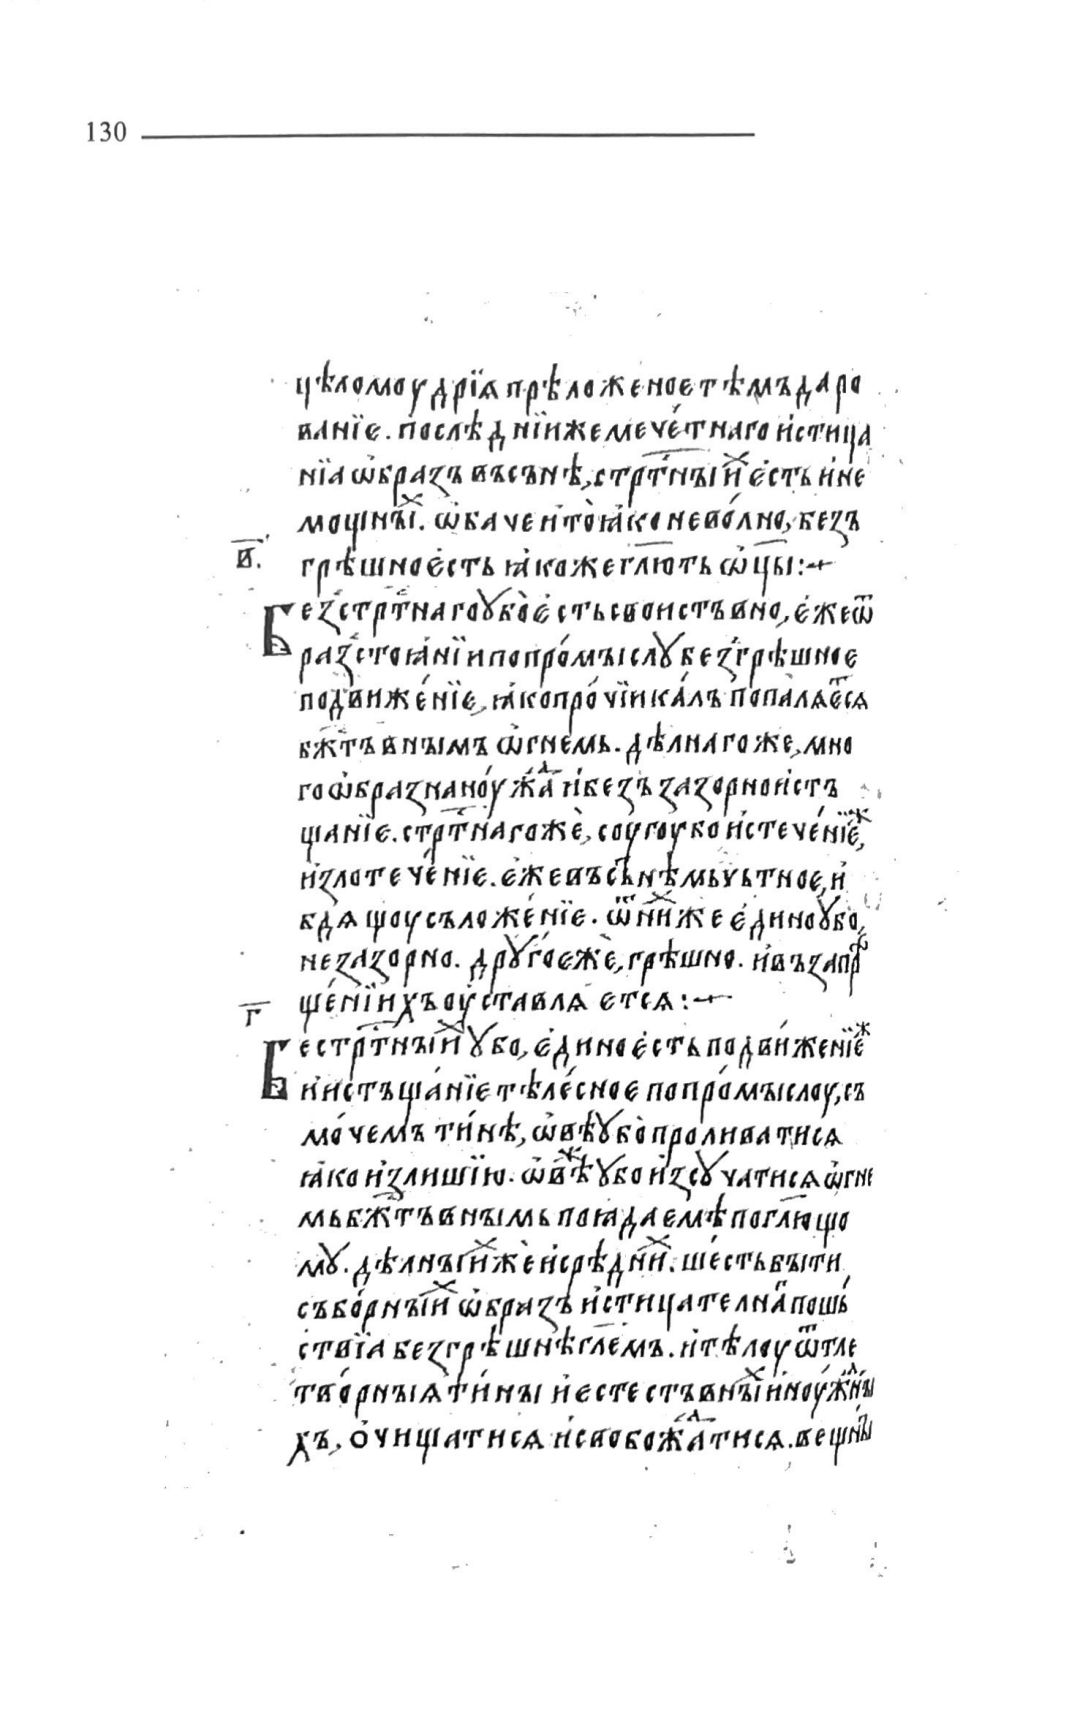 130
цѣломоудрїѧ прѣложеное тѣмъ даро
ванїе. послѣднїи же мече́тнаго и҆стица
нїа ѡ҆бразъ въ сънѣ, стрⷭ҇тныⷯи е҆сть и҆ не
мощныⷯ. ѡ҆баче и҆ то ꙗ҆ко нево́лно, без̾
в҃.
грѣшно е҆сть ꙗ҆коже гл҃ють ѡ҆ц҃ы :~
Безⸯстрⷭ҇тнаго ꙋ҆бо̀ е҆сть своиствъвно, є҆же ѿ
разⸯстоꙗ҆нїи и по про́мыслꙋ безⸯгрѣшное
подвиже́нїе, ꙗ҆ко про́чїи ка́лъ попалѧ́еⷮсѧ
бж҃тъвнымъ ѡ҆гнемь. дѣлнаго же, мно
гоѡ҆бразна ноу́жⷣа и҆ безъзазорно и҆стъ
щанїе. стрⷭ҇тнаго жѐ, соугоубо и҆стече́нїеⷤ,
и҆злотече́нїе. є҆же въ сънѣ мьчьтное, и҆
бдѧщоу съложе́нїе. ѿ ниⷯ же є҆дино ꙋ҆бо̀,
незазорно. дрꙋго́е жѐ, грѣшно. и҆ въ запрѣ
г҃
ще́нїи ихъ оу҆ставлѧется :~
Бестрⷭ҇тныⷯи ꙋ҆бо, є҆дино е҆сть подви́женїеⷤ
и҆ и҆стъща́нїе тѣле́сное по про́мыслоу, съ
мо́чемъ ти́нѣ, ѡ҆вѣ ꙋ҆бо̀ проливатися
ꙗ҆ко и҆злишїю. ѡ҆вѣⷤ ꙋ҆бо и҆зсꙋчатися ѡ҆гне
мь бж҃тъвнымь поꙗдаемѣ поглю҃що
мꙋ. дѣлныⷯи жѐ и҆ срѣдниⷯи. шесть быти
събо́рныⷯи ѡ҆бразъ и҆стицателнаⷢ пошь́
ствїа безгрѣшнѣ гл҃емъ. и҆ тѣлоу ѿ тле
тво́рныѧ ти́ны и҆ естестъвныⷯи и҆ ноу́жⷣны
хъ, ѻ҆чищатисѧ и҆ свобожⷣатисѧ. вещны